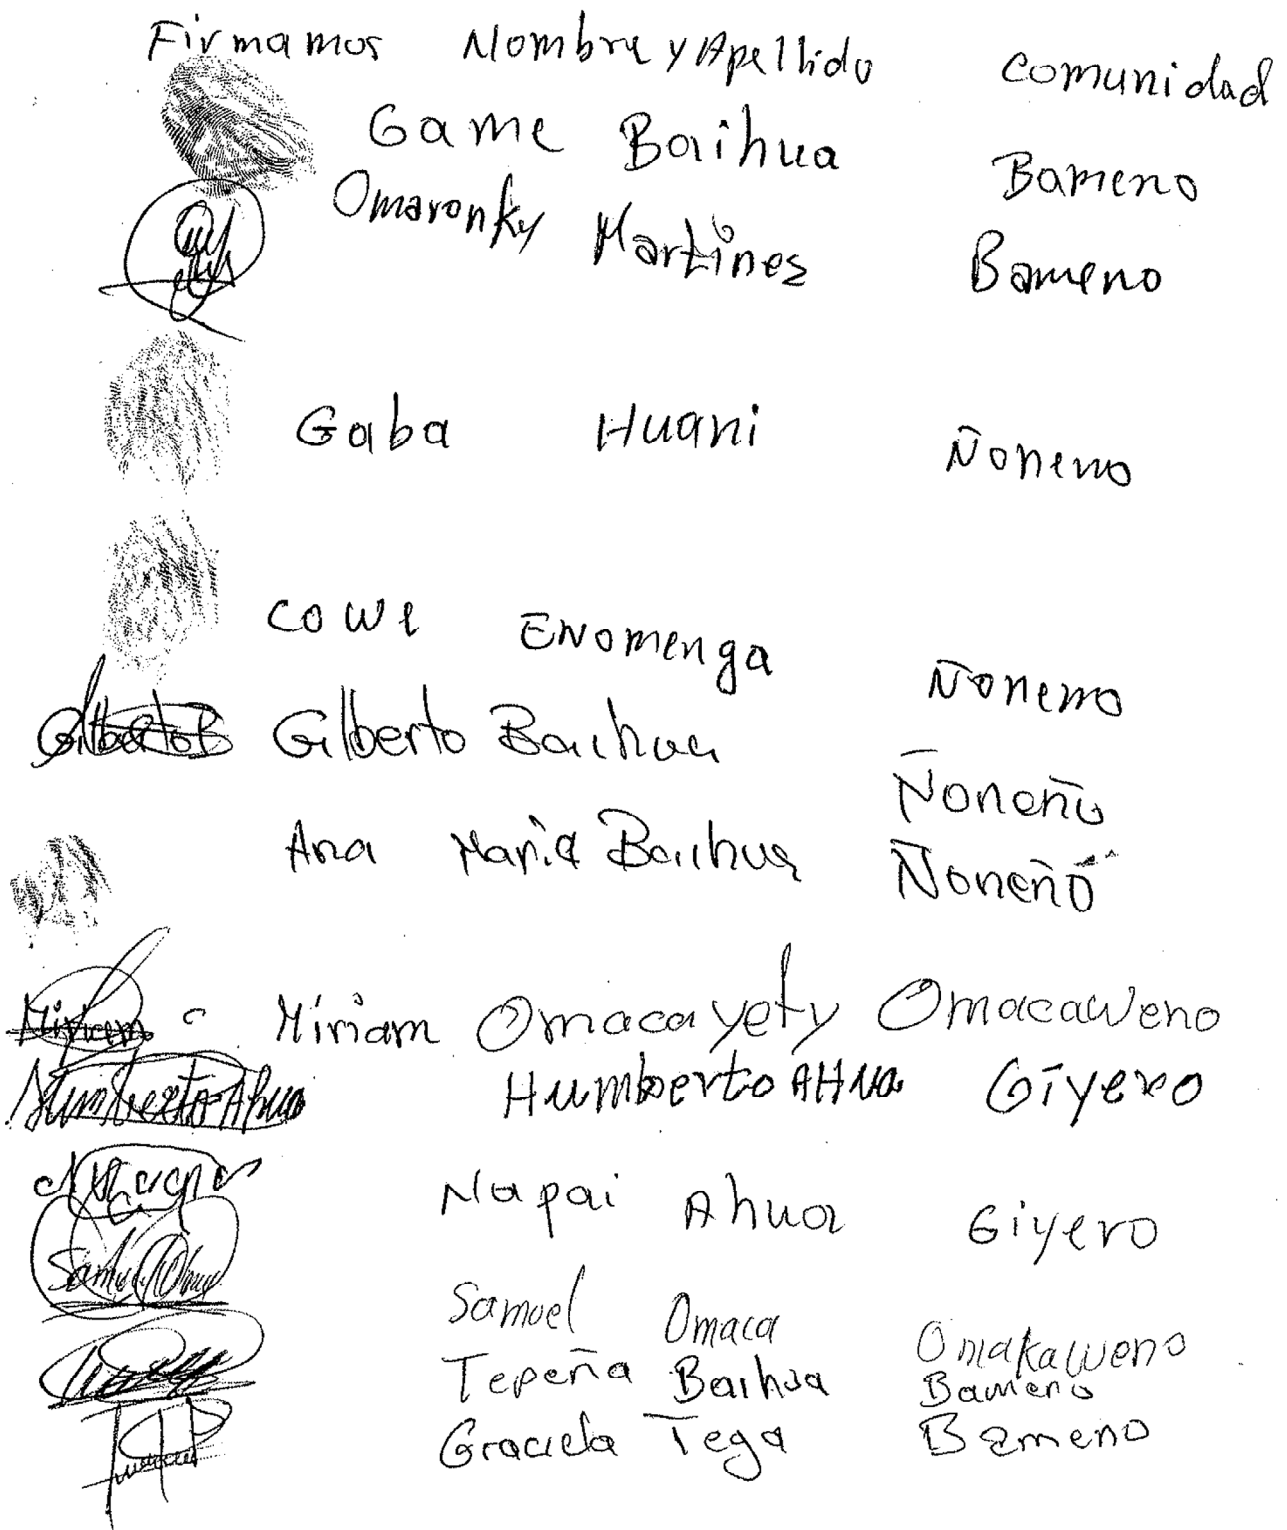 Firmamos Nombre y Apellido Comunidad
Game Baihua Bameno
Omaronky Martines Bameno
Gaba Huani Ñoneno
Cowe Enomenga Ñoneno
GilbertoB Gilberto Baihua Ñoneño
Ana Maria Baihua Ñoneñó
Miriam Miriam Omacayety Omacaweno
Humberto Ahua Humberto AHua Giyero
Napai Ahua Giyero
Samuel Omaca Omakaweno
Tepeña Baihua Bameno
Graciela Tega Bameno